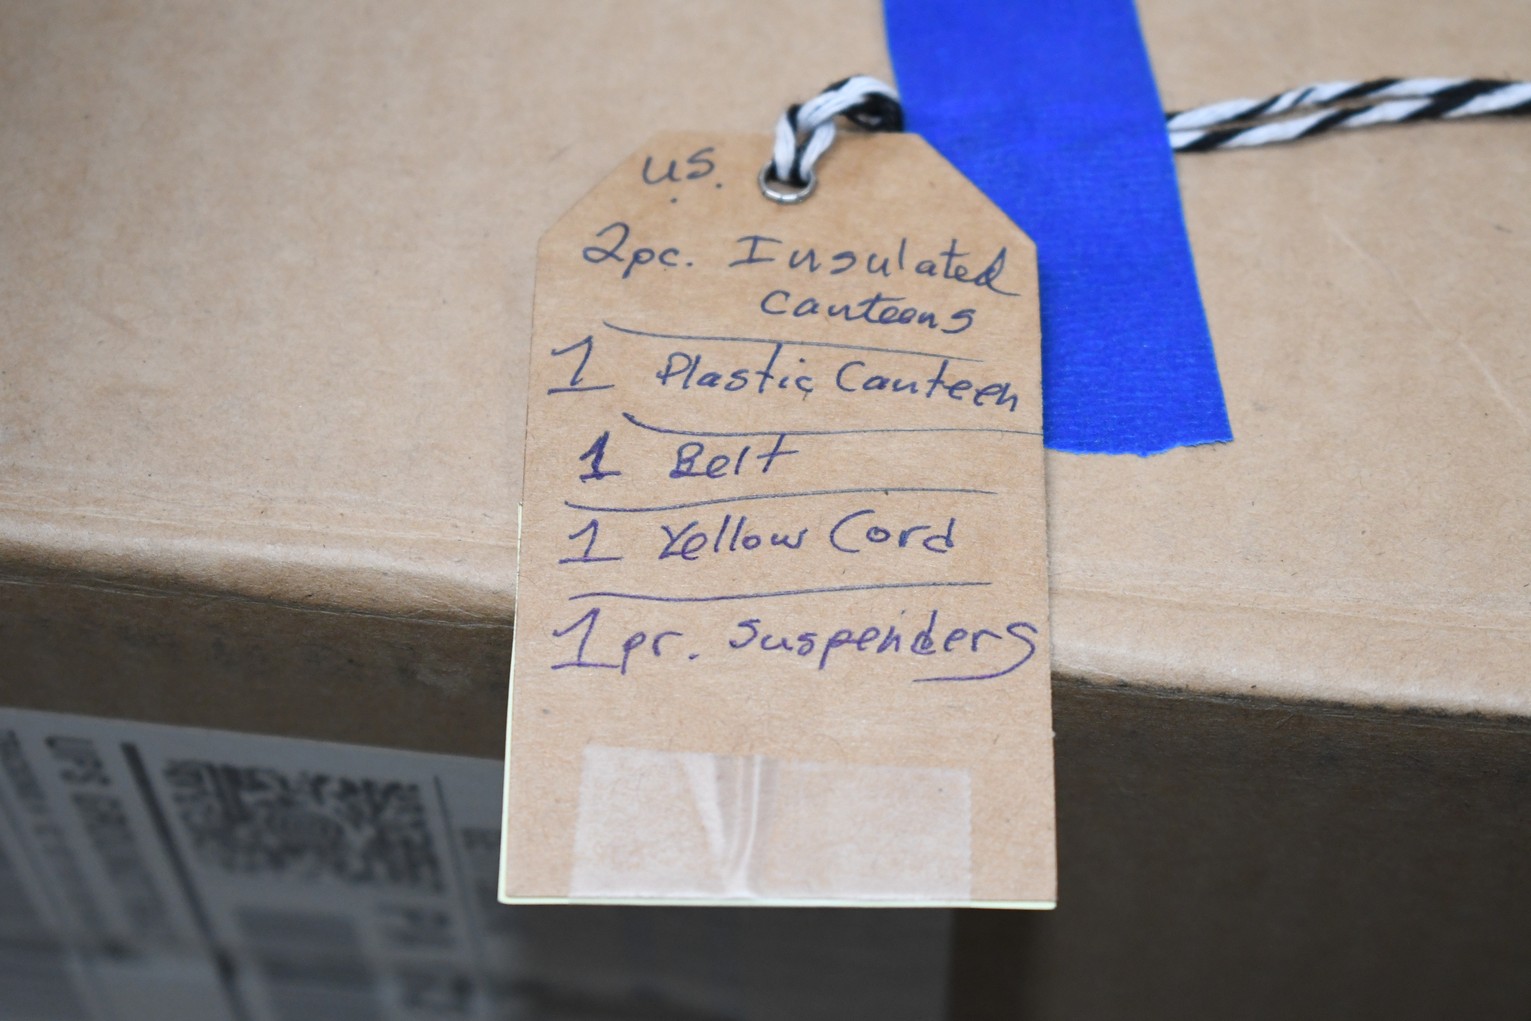 US.
2pc. Insulated
Canteens
1 Plastic Canteen
1 Belt
1 Yellow Cord
1 pr. Suspenders